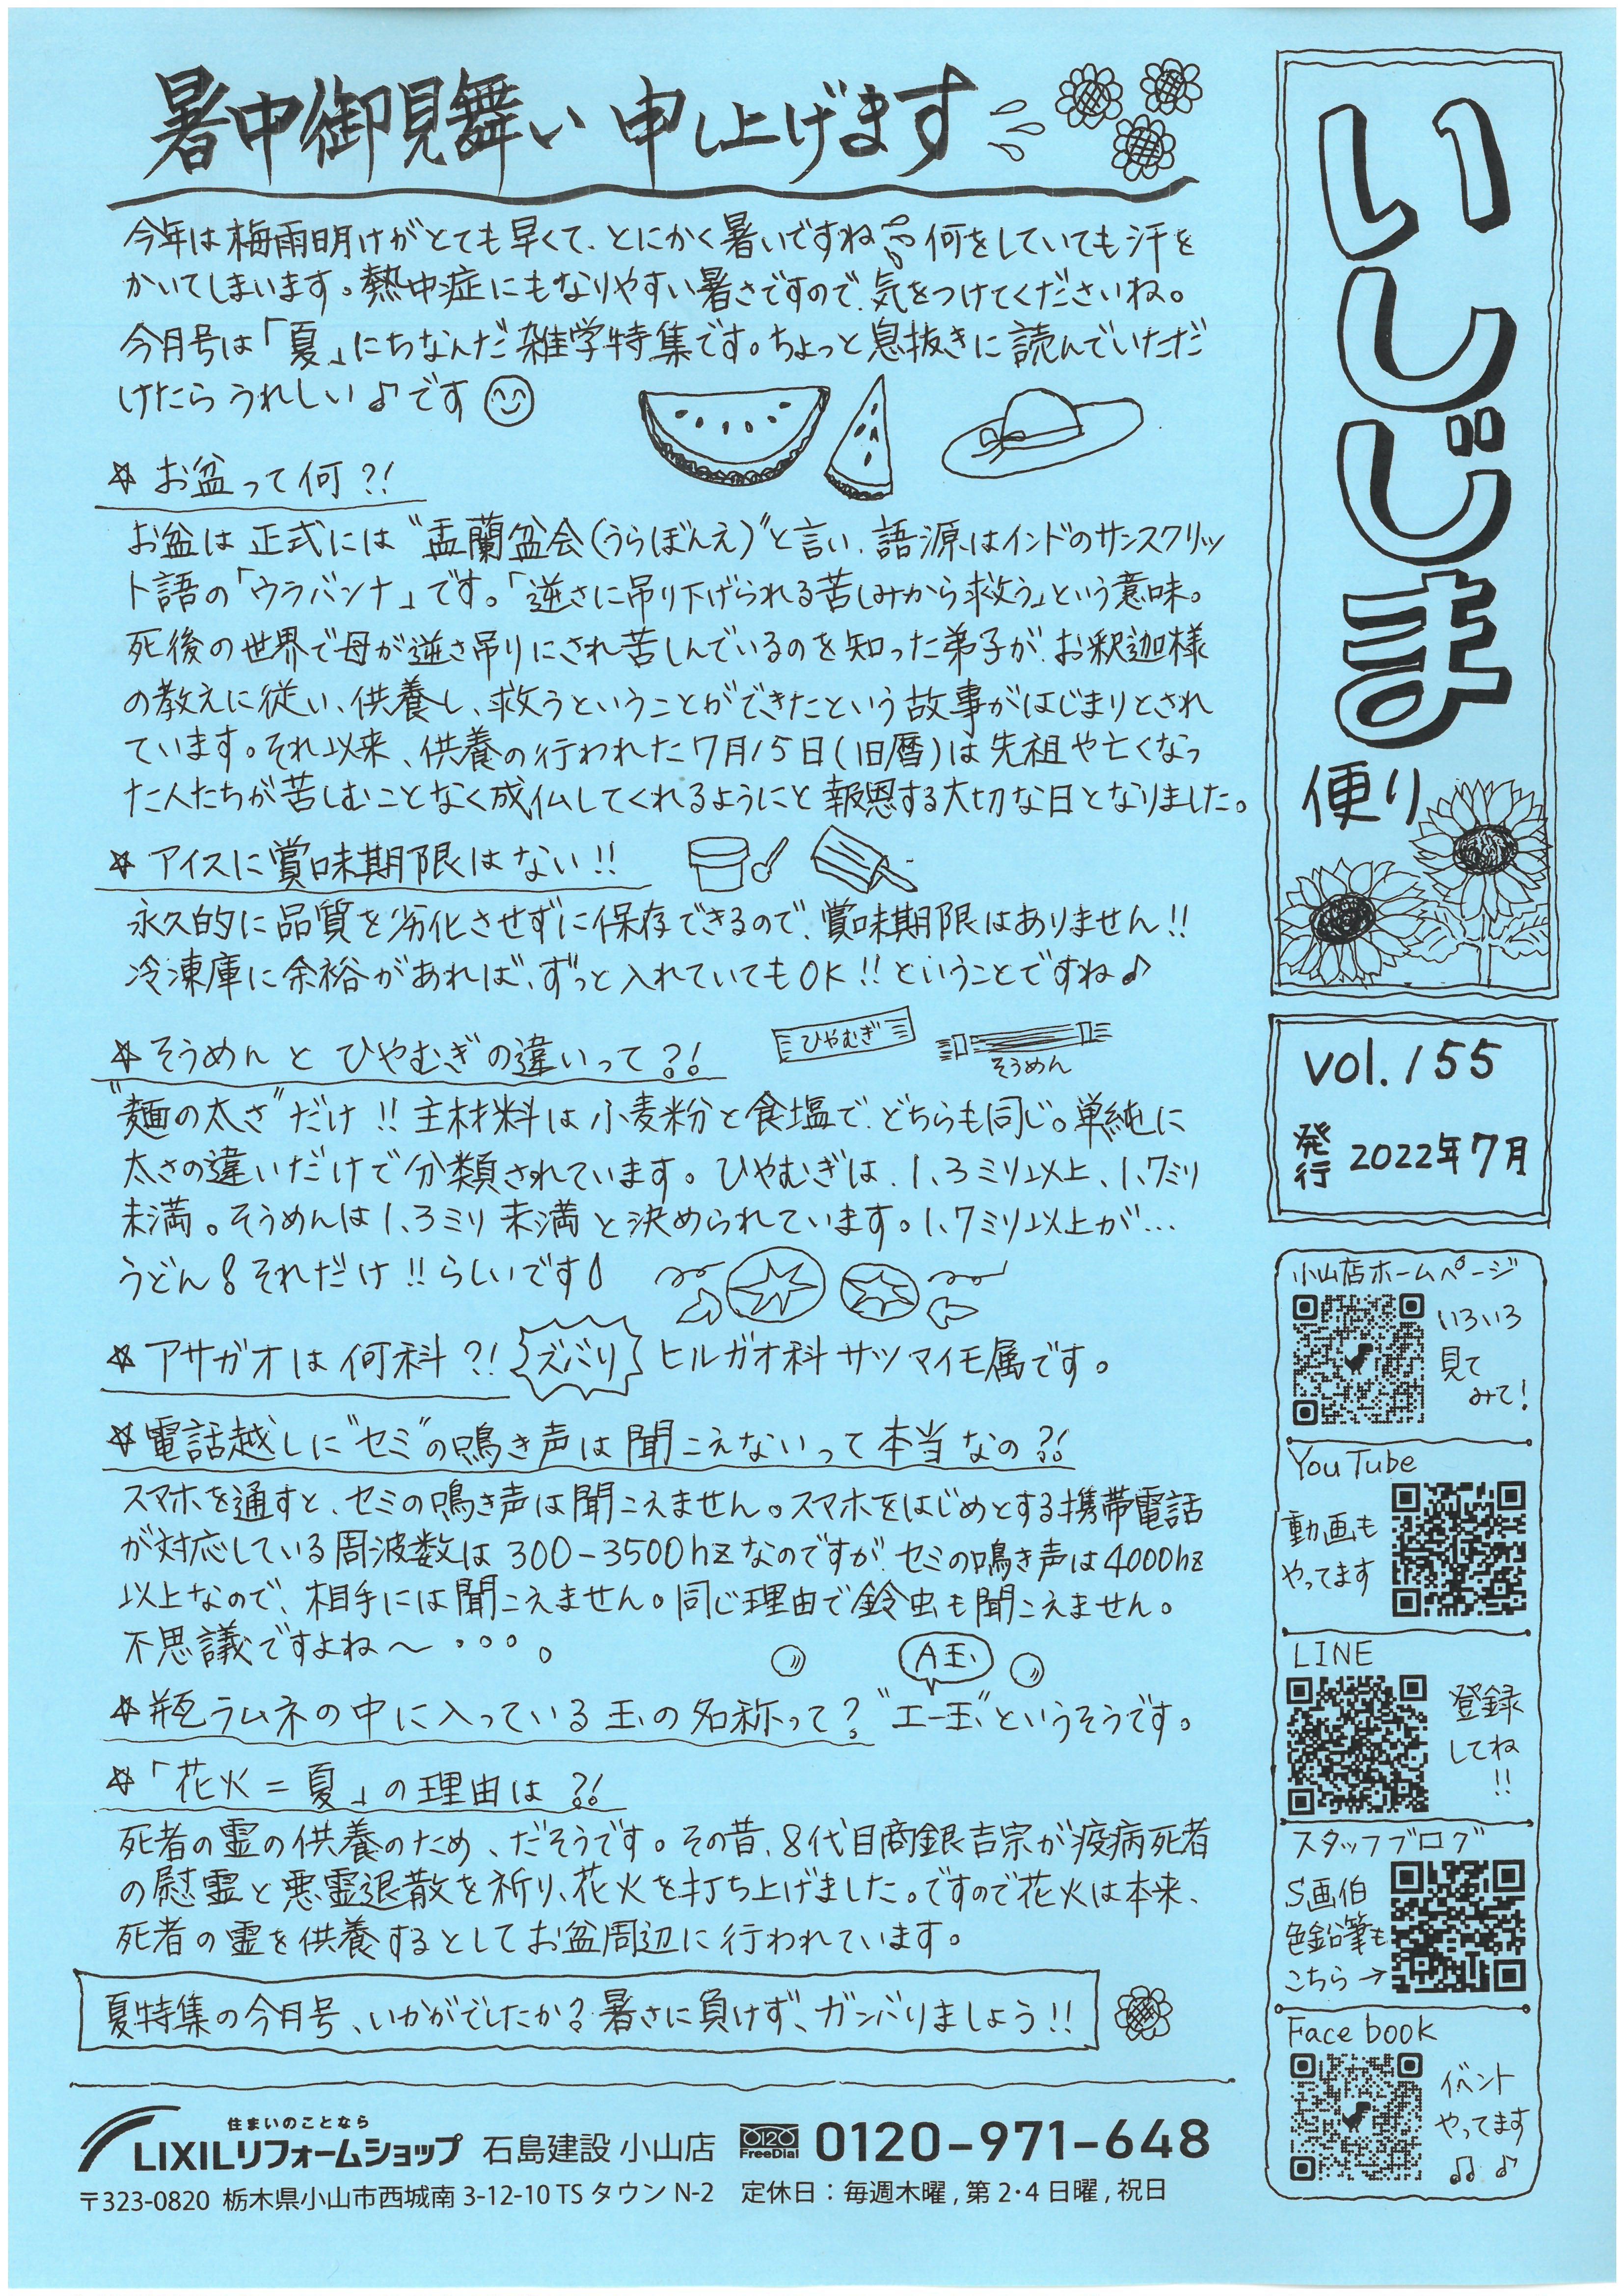 暑中御見舞い申し上げます
今年は梅雨明けがとても早くて、とにかく暑いですね 何をしていても汗を
かいてしまいます。熱中症にもなりやすい暑さですので、気をつけてくださいね。
今月号は「夏」にちなんだ雑学特集です。ちょっと息抜きに読んでいただ
けたらうれしい♪です
☆お盆って何?!
お盆は正式には"盂蘭盆会(うらぼんえ)"と言い、語源はインドのサンスクリッ
ト語の「ウラバンナ」です。「逆さに吊り下げられる苦しみから救う」という意味。
死後の世界で母が逆さ吊りにされ苦しんでいるのを知った弟子が、お釈迦様
の教えに従い、供養し、救うということができたという故事がはじまりとされ
ています。それ以来、供養の行われた7月15日(旧暦)は先祖や亡くなっ
た人たちが苦しむことなく成仏してくれるようにと報恩する大切な日となりました。
☆アイスに賞味期限はない!!
永久的に品質を劣化させずに保存できるので、賞味期限はありません!!
冷凍庫に余裕があれば、ずっと入れていてもOK!!ということですね♪
☆そうめんとひやむぎの違いって?!
ひやむぎ
そうめん
"麺の太さ"だけ!!主材料は小麦粉と食塩で、どちらも同じ。単純に
太さの違いだけで分類されています。ひやむぎは、1.3ミリ以上、1.7ミリ
未満。そうめんは1.3ミリ未満と決められています。1.7ミリ以上が…
うどん!それだけ!!らしいです!
☆アサガオは何科?! ズバリ ヒルガオ科サツマイモ属です。
☆電話越しに"セミ"の鳴き声は聞こえないって本当なの?!
スマホを通すと、セミの鳴き声は聞こえません。スマホをはじめとする携帯電話
が対応している周波数は300-3500hzなのですが、セミの鳴き声は4000hz
以上なので、相手には聞こえません。同じ理由で鈴虫も聞こえません。
不思議ですよね～・・・。
A玉
☆瓶ラムネの中に入っている玉の名称って?"エー玉"というそうです。
☆「花火=夏」の理由は?!
死者の霊の供養のため、だそうです。その昔、8代目商銀吉宗が疫病死者
の慰霊と悪霊退散を祈り、花火を打ち上げました。ですので花火は本来、
死者の霊を供養するとしてお盆周辺に行われています。
夏特集の今月号、いかがでしたか?暑さに負けず、ガンバりましょう!!
住まいのことなら
LIXILリフォームショップ 石島建設 小山店 FreeDial 0120-971-648
〒323-0820 栃木県小山市西城南3-12-10 TSタウンN-2 定休日：毎週木曜,第2・4日曜,祝日
いしじま
便り
vol.155
発行 2022年7月
小山店ホームページ
いろいろ
見て
みて!
YouTube
動画も
やってます
LINE
登録
してね
!!
スタッフブログ
S画伯
色鉛筆も
こちら→
Facebook
イベント
やってます
♫♪